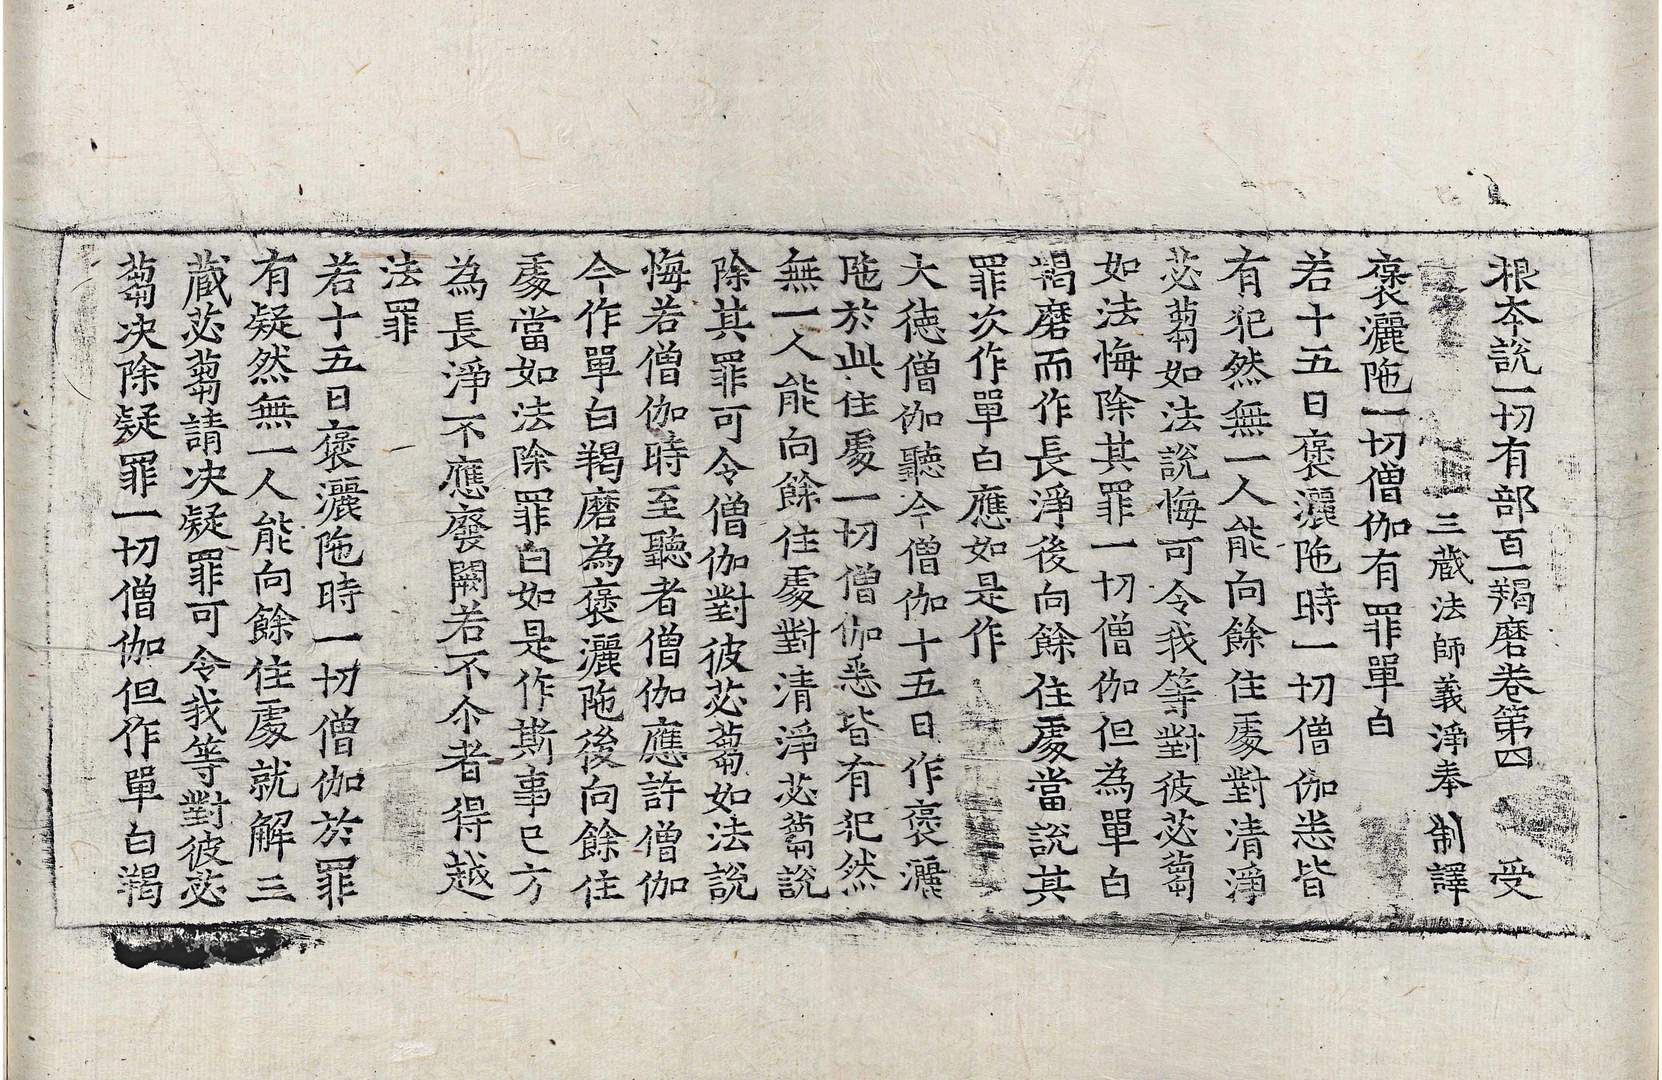 根本說一切有部百一羯磨卷第四　受
三藏法師義淨奉　制譯
褒灑陁一切僧伽有罪單白
若十五日褒灑陁時一切僧伽悉皆
有犯然無一人能向餘住處對清淨
苾蒭如法說悔可令我等對彼苾蒭
如法悔除其罪一切僧伽但為單白
羯磨而作長淨後向餘住處當說其
罪次作單白應如是作
大德僧伽聽今僧伽十五日作褒灑
陁於此住處一切僧伽悉皆有犯然
無一人能向餘住處對清淨苾蒭說
除其罪可令僧伽對彼苾蒭如法說
悔若僧伽時至聽者僧伽應許僧伽
今作單白羯磨為褒灑陁後向餘住
處當如法除罪白如是作斯事已方
為長淨不應廢闕若不尒者得越
法罪
若十五日褒灑陁時一切僧伽於罪
有疑然無一人能向餘住處就解三
藏苾蒭請决疑罪可令我等對彼苾
蒭决除疑罪一切僧伽但作單白羯